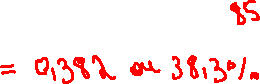 85
= 0,382 ou 38,3%